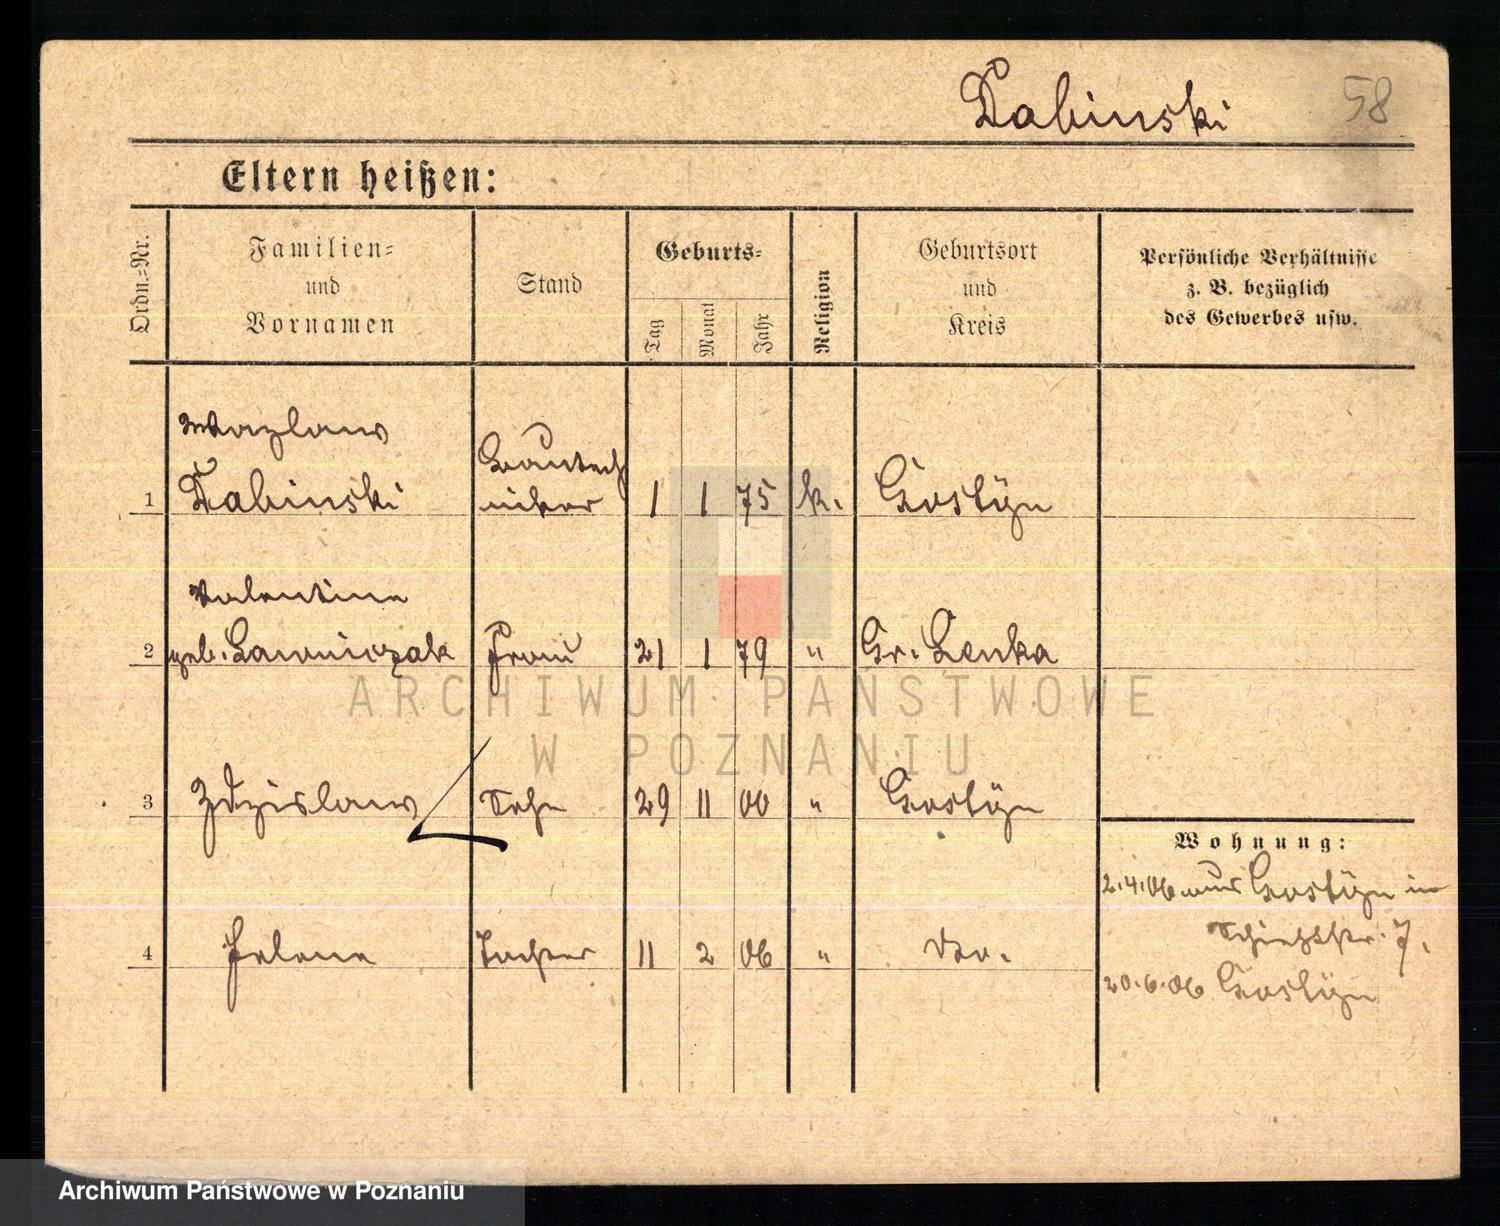 Dabinski 58
Eltern heißen:
Ordn.=Nr.
Familien=
und
Vornamen
Stand
Geburts=
Tag
Monat
Jahr
Religion
Geburtsort
und
Kreis
Persönliche Verhältnisse
z. B. bezüglich
des Gewerbes usw.
Wazlaus
Bautech
1 Dabinski niker 1 1 75 k. Gostÿn
Valentine
2 geb. Frau 21 1 79 " Gr. Lenka
3 Zdzislaus Sohn 29 11 00 " Gostÿn
Wohnung:
2.4.06 aus Gostÿn in
7.
4 Helene Tochter 11 2 06 " Do.
20.6.06 Gostÿn
ARCHIWUM PAŃSTWOWE
W POZNANIU
Archiwum Państwowe w Poznaniu